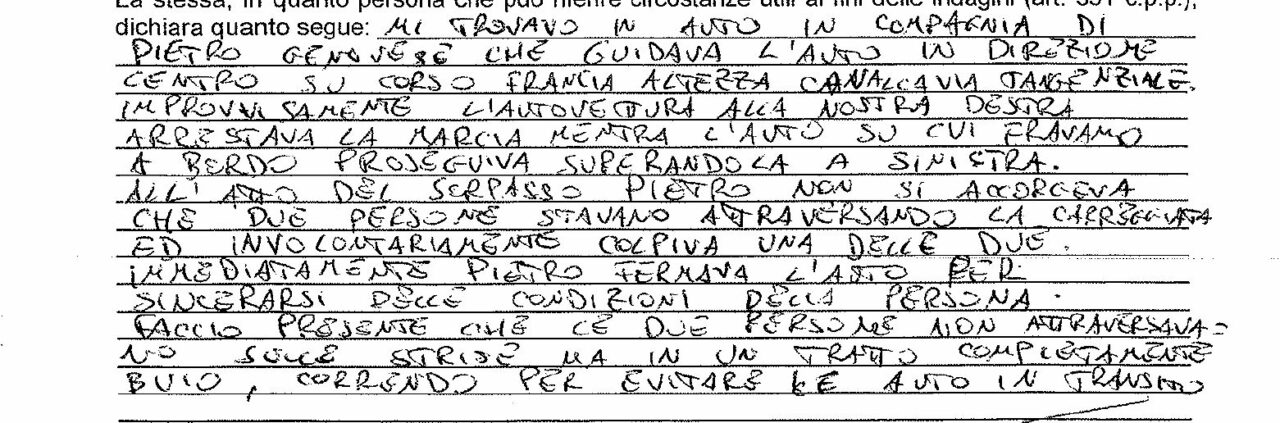 La stessa, in quanto persona che può riferire circostanze utili ai fini delle indagini (art. 351 c.p.p.),
dichiara quanto segue: MI TROVAVO IN AUTO IN COMPAGNIA DI
PIETRO GENOVESE CHE GUIDAVA L'AUTO IN DIREZIONE
CENTRO SU CORSO FRANCIA ALTEZZA CAVALCAVIA TANGENZIALE.
IMPROVVISAMENTE L'AUTOVETTURA ALLA NOSTRA DESTRA
ARRESTAVA LA MARCIA MENTRA L'AUTO SU CUI ERAVAMO
A BORDO PROSEGUIVA SUPERANDOLA A SINISTRA.
ALL'ATTO DEL SORPASSO PIETRO NON SI ACCORGEVA
CHE DUE PERSONE STAVANO ATTRAVERSANDO LA CARREGGIATA
ED INVOLONTARIAMENTE COLPIVA UNA DELLE DUE.
IMMEDIATAMENTE PIETRO FERMAVA L'AUTO PER
SINCERARSI DELLE CONDIZIONI DELLA PERSONA.
FACCIO PRESENTE CHE LE DUE PERSONE NON ATTRAVERSAVA=
NO SULLE STRISE MA IN UN TRATTO COMPLETAMENTE
BUIO, CORRENDO PER EVITARE LE AUTO IN TRANSITO